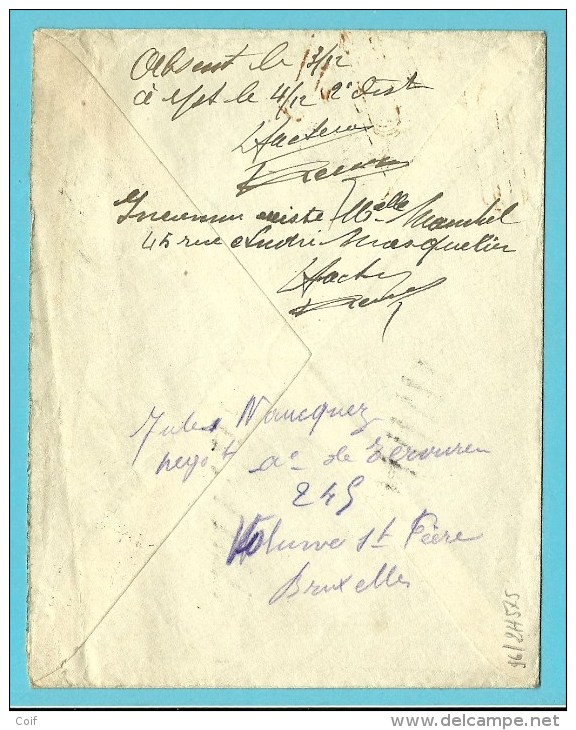 Absent le 3/12
à 4/12 2e dist
Facteur
Inconnu existe Melle
45 rue André Masquelier
Facteur
Jules Naucquez
negot ae de Tervuren
245
Woluwe St Pierre
Bruxelles
96/24575
Coif
www.delcampe.net